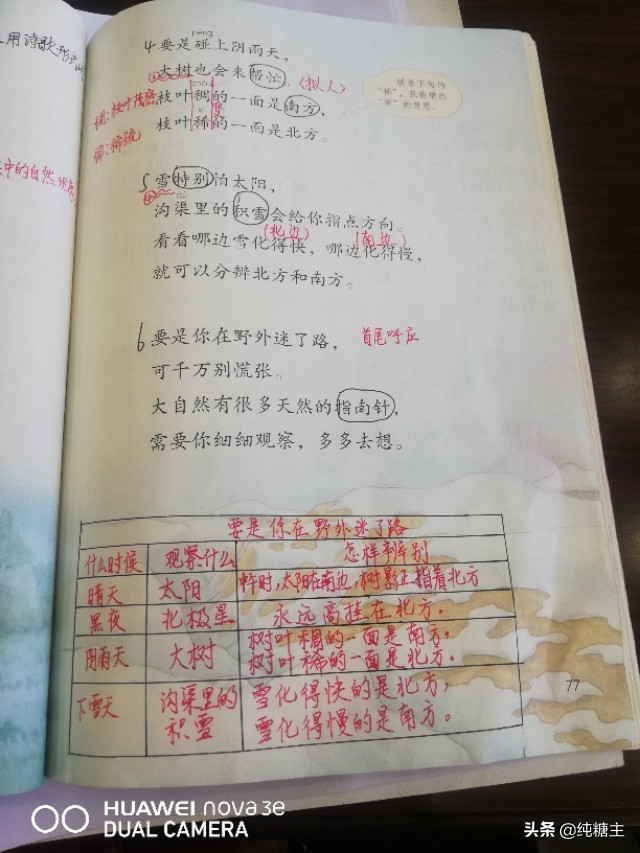 用诗歌
中的自然现象
pèng
4 要是碰上阴雨天，
大树也会来帮忙。(拟人)
枝叶稠的一面是南方，
枝叶稀的一面是北方。
稠：枝叶茂密
稀：稀疏
联系下句的
“稀”，我能猜出
“稠”的意思。
5 雪特别怕太阳，
沟渠里的积雪会给你指点方向。
(北边) (南边)
看看哪边雪化得快，哪边化得慢，
就可以分辨北方和南方。
6 要是你在野外迷了路， 首尾呼应
可千万别慌张。
大自然有很多天然的指南针，
需要你细细观察，多多去想。
要是你在野外迷了路
什么时候 观察什么 怎样辨别
晴天 太阳 中午时，太阳在南边，树影正指着北方
黑夜 北极星 永远高挂在北方。
阴雨天 大树 树叶稠的一面是南方，
树叶稀的一面是北方。
下雪天 沟渠里的 雪化得快的是北方，
积雪 雪化得慢的是南方。
77
HUAWEI nova 3e
DUAL CAMERA
头条 @纯糖主